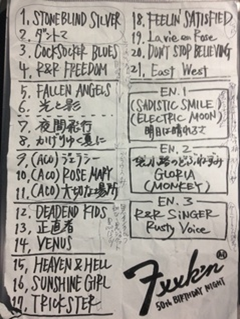 1, STONEBLIND SILVER
2, ダントツ
3, COCKSOCKER BLUES
4, R&R FREEDOM
5, FALLEN ANGELS
6, 光と影
7, 夜間飛行
8, かげりゆく夏に
9, (ACO) ジェラシー
10, (ACO) ROSE MARY
11, (ACO) 大切な場所
12, DEADEND KIDS
13, 正直者
14, VENUS
15, HEAVEN & HELL
16, SUNSHINE GIRL
17, TRICKSTER
18, FEELIN' SATISFIED
19, La vie en Rose
20, DON'T STOP BELIEVING
21, East West
EN. 1
(SADISTIC SMILE)
(ELECTRIC MOON)
明日は晴れるさ
EN. 2
のどぶねずみ
GLORIA
(MONKEY)
EN. 3
R&R SINGER
Rusty Voice
Feek'n
50th BIRTHDAY NIGHT